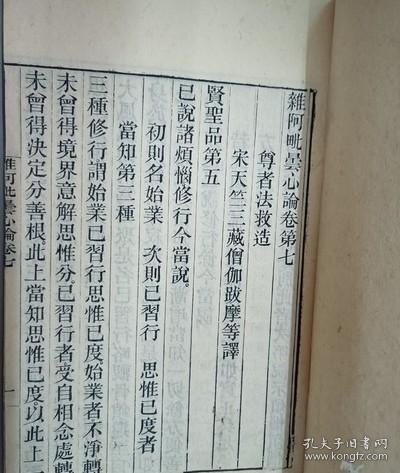 雜阿毗曇心論卷第七
尊者法救造
宋天竺三藏僧伽跋摩等譯
賢聖品第五
已說諸煩惱修行今當說。
初則名始業 次則已習行 思惟已度者
當知第三種
三種修行謂始業已習行思惟已度始業者不淨轉
未曾得境界意解思惟分。已習行者受自相念處轉
未曾得決定分善根。此上當知思惟已度以此上
雜阿毗曇心論卷七
一
孔夫子旧书网
kongfz.com